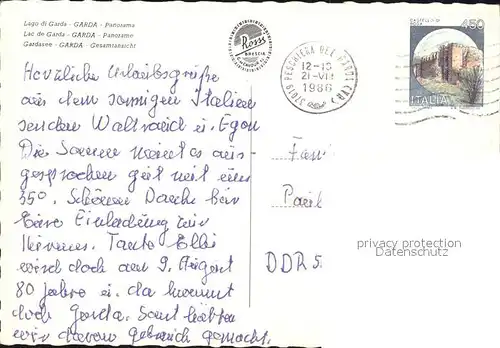 Lago di Garda - GARDA - Panorama
Lac de Garda - GARDA - Panorame
Gardasee - GARDA - Gesamtansicht
Rossi
BRESCIA
37019 PESCHIERA DEL GARDA (VR)
12-18
21-VII
1986
450
ITALIA
Herzliche Urlaubsgrüße
aus dem sonnigen Italien
senden Waltraud u. Egon
Die Sonne meint es aus-
gesprochen gut mit uns
35°. Schönen Dank für
Eure Einladung zur
Tante Elli
wird doch am 9. August
80 Jahre u. da kommt
doch Gerda. Sonst hätten
wir davon gebrauch gemacht.
Fam
Paul
DDR 5
privacy protection
Datenschutz